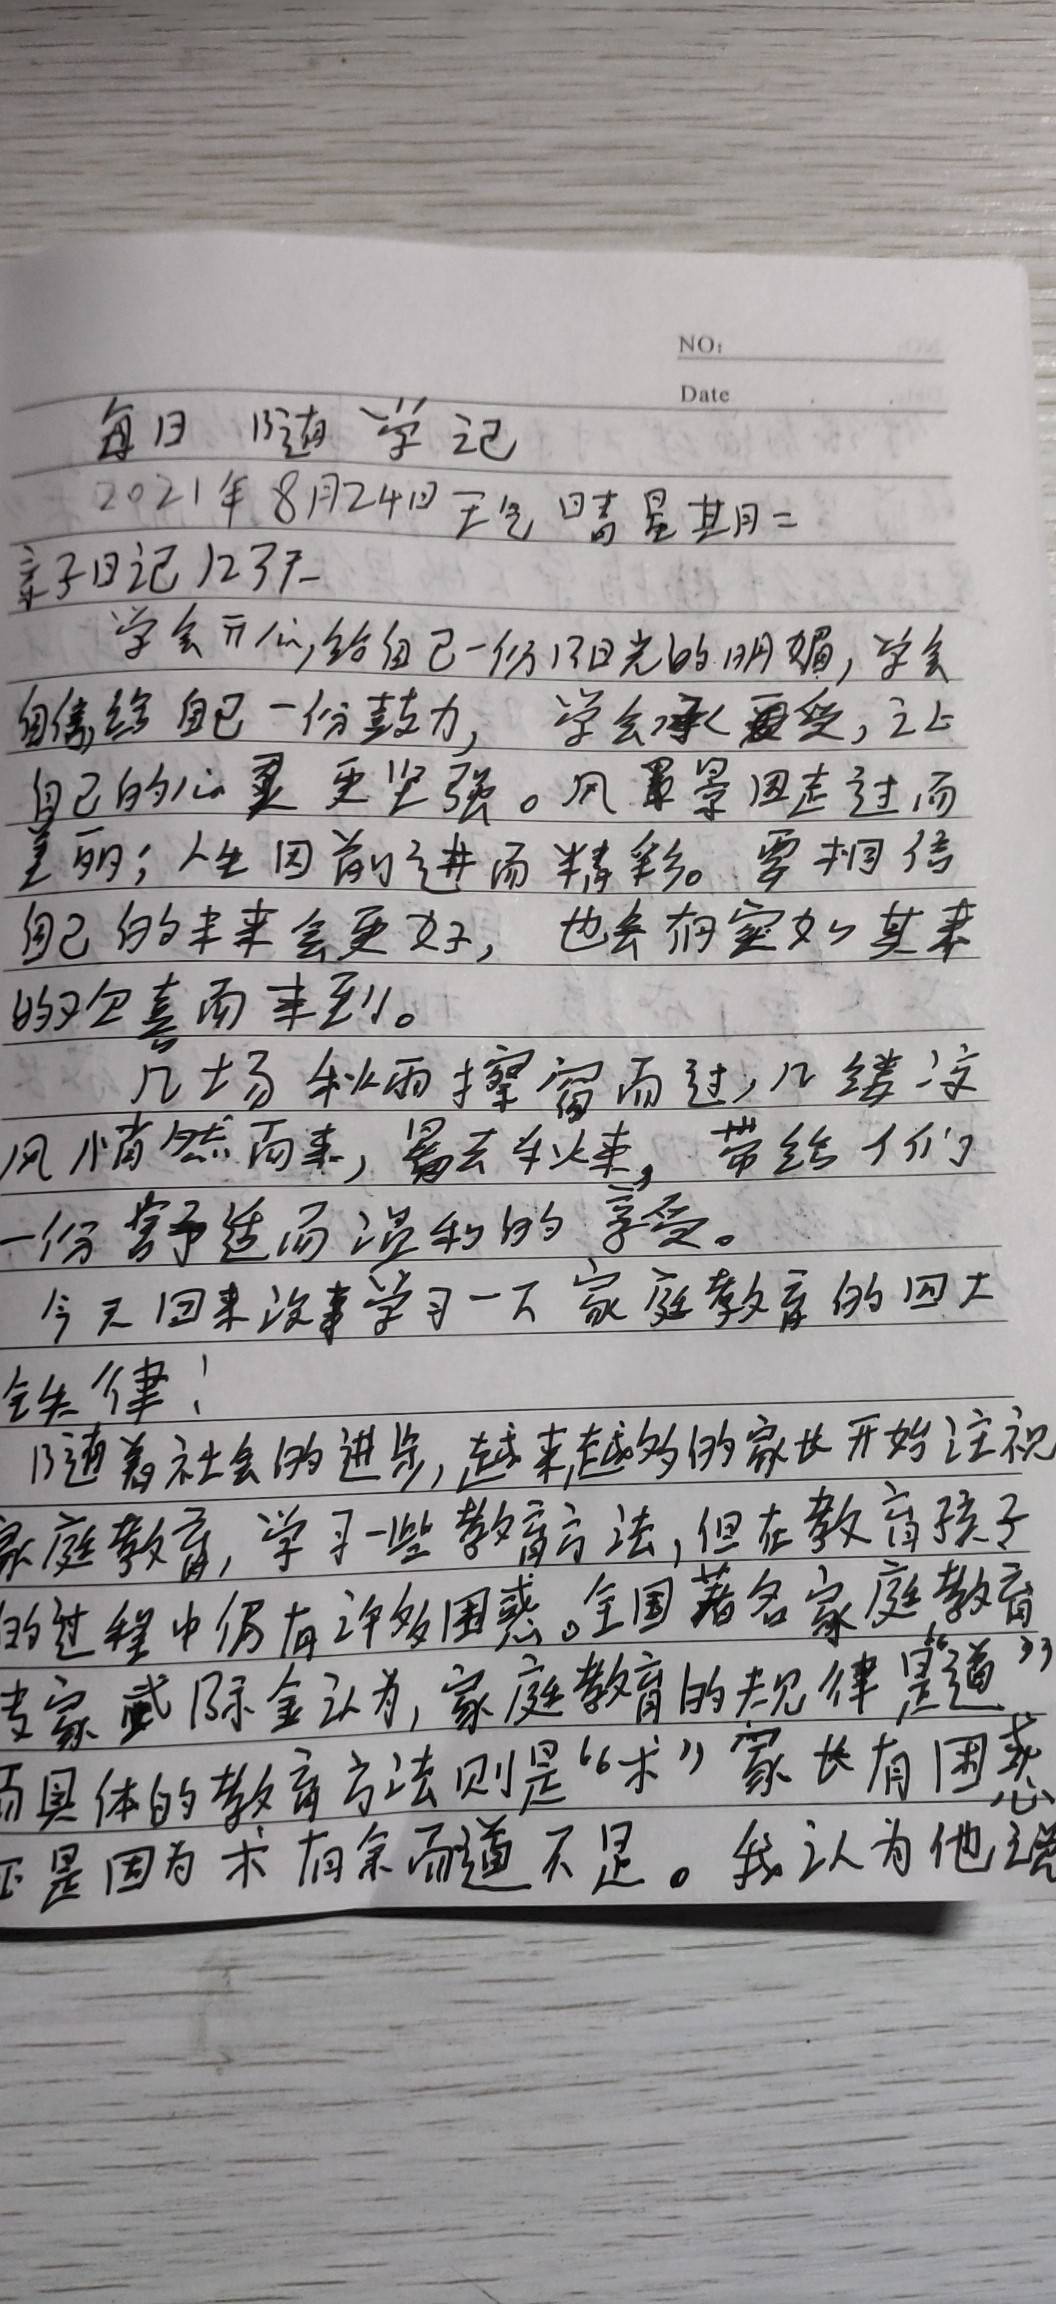 NO:
Date
每日 随学记
2021年8月24日天气 晴星期二
亲子日记123天
学会开心,给自己一份阳光的明媚,学会
自信,给自己一份鼓力, 学会承受,让
自己的心灵更坚强。风景因走过而
美丽;人生因前进而精彩。要相信
自己的未来会更好, 也会有它如其来
的欢喜而来到。
几场秋雨擦窗而过,几缕凉
风悄然而来,暑去秋来,带给人们
一份舒适而温和的享受。
今天回来没事学习一下家庭教育的四大
铁律!
随着社会的进步,越来越多的家长开始注视
家庭教育,学习一些教育方法,但在教育孩子
的过程中仍有许多困惑。全国著名家庭教育
专家 际金认为,家庭教育的规律是“道”
而具体的教育方法则是“术”家长有困惑
正是因为术有余而道不足。我认为他说